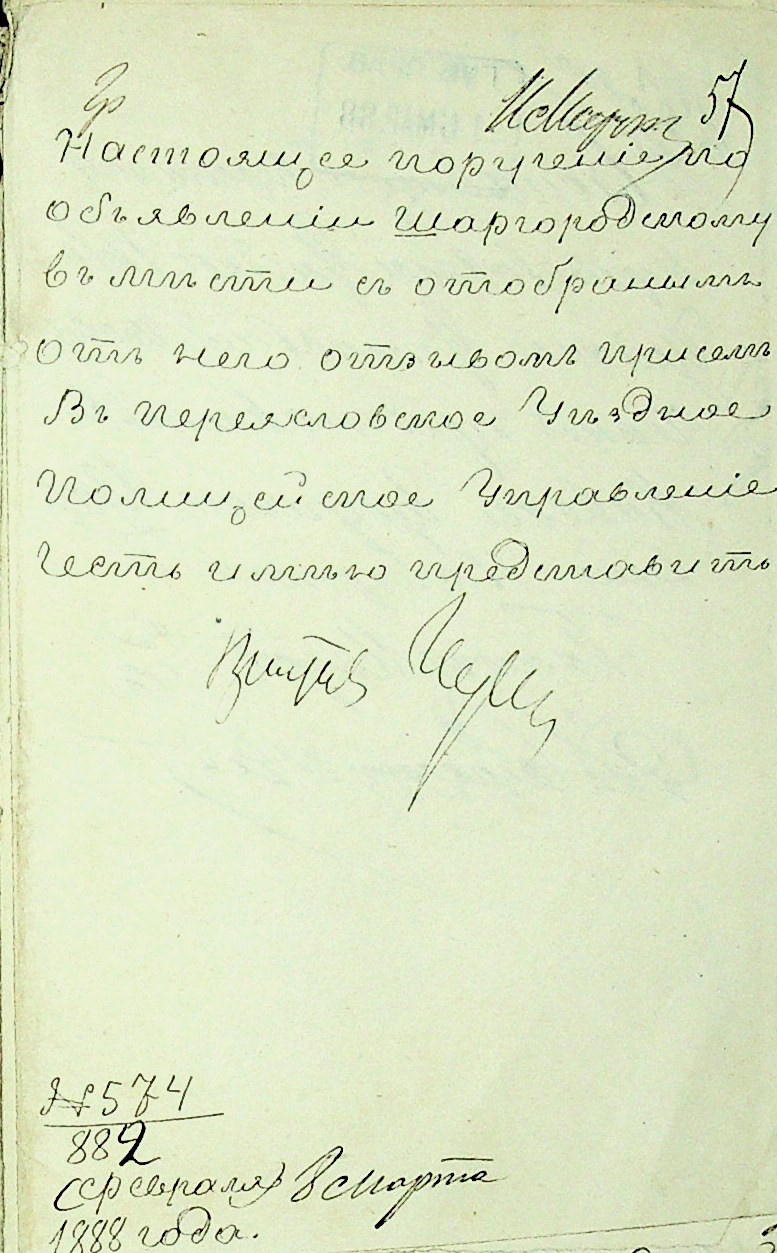 57
Настоящее порученіе по
объявленіи Шаргородскому
вълѣсти съ отобранымъ
отъ него отзывомъ присемъ
Въ Переясловское Уѣздное
Полицейское Управленіе
Честь имѣю представить
№ 574
882
(Февраля) 8 Марта
1888 года.